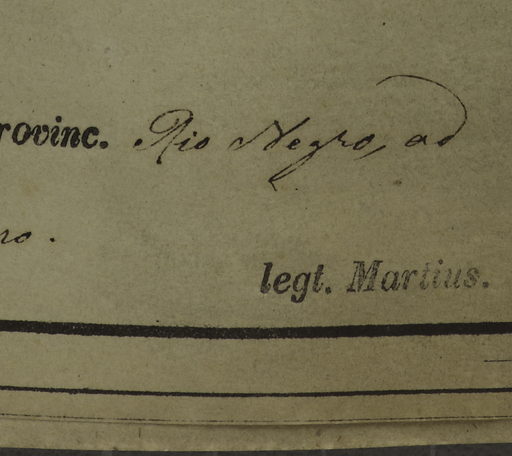 rovinc. Rio Negro, ad
ro.
legt. Martius.